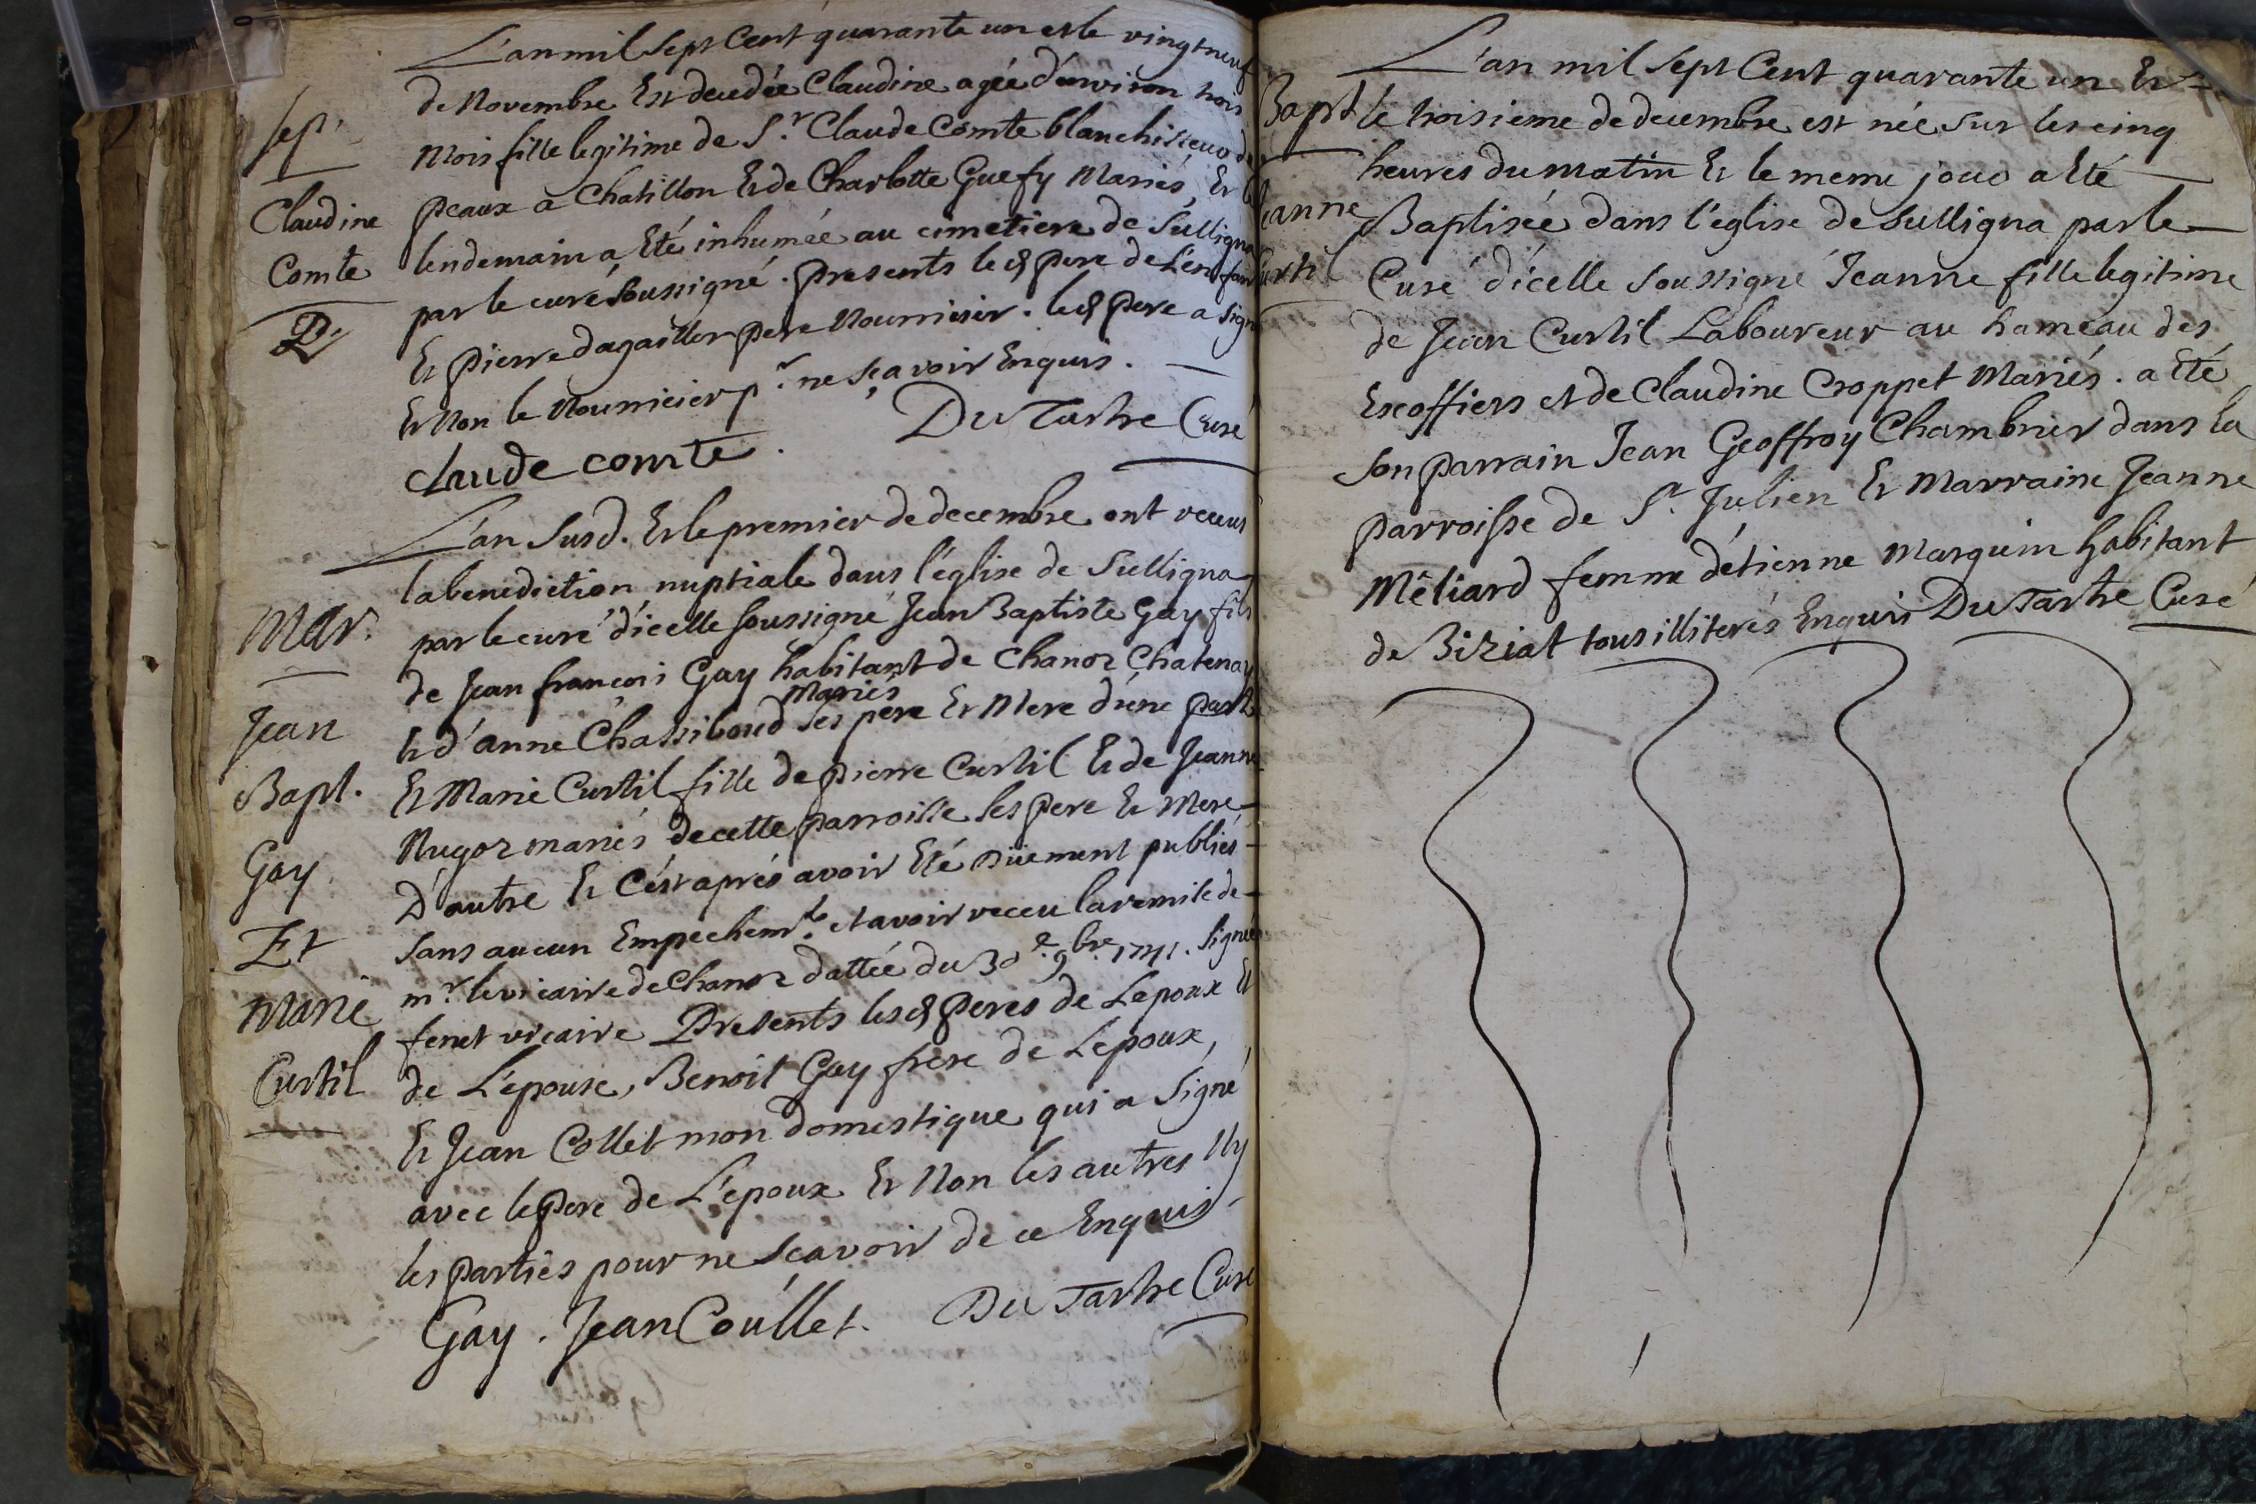 L'an mil sept Cent quarante un et le vingt neuf
de Novembre Est decedée Claudine agée d'environ trois
mois fille legitime de Sr. Claude Comte blanchisseur de
peaux a Chatillon Et de Charlotte Guefy Mariés, Et le
lendemain a Eté inhumée au cimetiere de Sulligna
par le curé soussigné. presents led pere de L'enfant
Et pierre dagailler pere Nourricier. led pere a signé
Et Non le Nourricier pr. ne sçavoir Enquis.
claude comte. Du Tartre Curé
Sep.
Claudine
Comte
D.
L'an susd. Et le premier de decembre ont receus
la benediction nuptiale dans l'église de Sulligna
par le curé d'icelle soussigné Jean Baptiste Gay fils
de Jean françois Gay habitant de Chanoz Chatenay
Mariés
Et d'anne Chassiboud ses père Et Mere d'une part
Et Marie Curtil fille de pierre Curtil Et de Jeanne
Nugoz mariés de cette parroisse ses pere Et Mere
D'autre Et C'est aprés avoir Eté düement publiés
sans aucun Empechemt. et avoir receu la remise de
mr. le vicaire de Chanoz dattée du 30e. 9bre. 1741. signée
fenet vicaire Presents lesd peres de L'epoux Et
de L'épouse, Benoit Gay frere de L'epoux,
Et Jean Collet mon domestique qui a signé
avec le pere de L'epoux Et Non les autres Ny
les parties pour ne sçavoir de ce Enquis.
Gay. Jean Coullet. Du Tartre Curé
Mar.
Jean
Bapt.
Gay
Et
Marie
Curtil
L'an mil sept Cent quarante un Et
le troisieme de decembre est née sur les cinq
heures du matin Et le meme jour a Eté
Baptisée dans l'église de Sulligna par le
Curé d'icelle soussigné Jeanne fille legitime
de Jean Curtil Laboureur au hameau des
Escoffiers et de Claudine Croppet Mariés. a Eté
son parrain Jean Geoffroy Chambrier dans la
parroisse de St. Julien Et Marraine Jeanne
Mêliard femme d'étienne Marguin habitant
de Biziat tous illiterés Enquis Du Tartre Curé
Bapt
Jeanne
Curtil